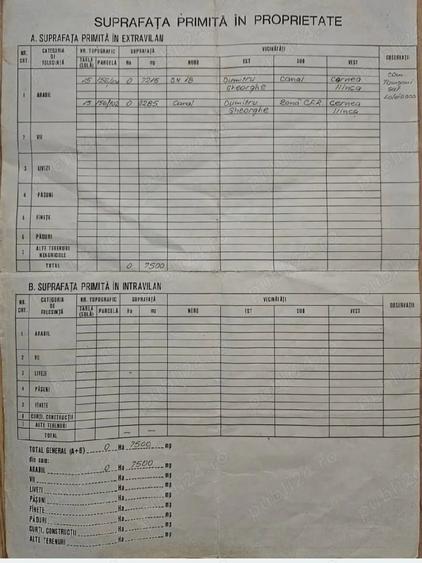 SUPRAFAȚA PRIMITĂ ÎN PROPRIETATE
A. SUPRAFAȚA PRIMITĂ ÎN EXTRAVILAN
NR. CRT. CATEGORIA DE FOLOSINȚĂ NR. TOPOGRAFIC SUPRAFAȚĂ VECINĂTĂȚI OBSERVAȚII
TARLA (SOLĂ) PARCELĂ Ha mp NORD EST SUD VEST
1 ARABIL 15 0 7215 DN 1B Dumitru Gheorghe Canal Cernea Ilinca com
15 0 Canal Dumitru Gheorghe Zona C.F.R Cernea Ilinca sat
2 VII
3 LIVEZI
4 PĂȘUNI
5 FÎNEȚE
6 PĂDURI
7 ALTE TERENURI NEAGRICOLE
TOTAL 0 7500
B. SUPRAFAȚA PRIMITĂ ÎN INTRAVILAN
NR. CRT. CATEGORIA DE FOLOSINȚĂ NR. TOPOGRAFIC SUPRAFAȚĂ VECINĂTĂȚI OBSERVAȚII
TARLA (SOLĂ) PARCELĂ Ha mp NORD EST SUD VEST
1 ARABIL
2 VII
3 LIVEZI
4 PĂȘUNI
5 FÎNEȚE
6 CURȚI, CONSTRUCȚII
7 ALTE TERENURI
TOTAL — —
TOTAL GENERAL (A+B) 0 Ha 7500 mp
din care:
ARABIL 0 Ha 7500 mp
VII Ha mp
LIVEZI Ha mp
PĂȘUNI Ha mp
FÎNEȚE Ha mp
PĂDURI Ha mp
CURȚI, CONSTRUCȚII Ha mp
ALTE TERENURI Ha mp